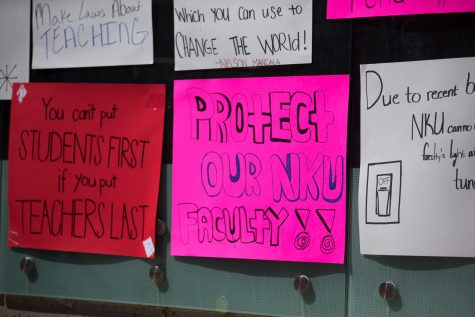 Make Laws About
TEACHING
Which you can use to
CHANGE THE World!
-NELSON MANDELA
You can't put
STUDENTS FIRST
if you put
TEACHERS LAST
PROtECt
OUR NKU
FACULTY!!
Due to recent b
NKU canno
faculty's light a
tun
OFF